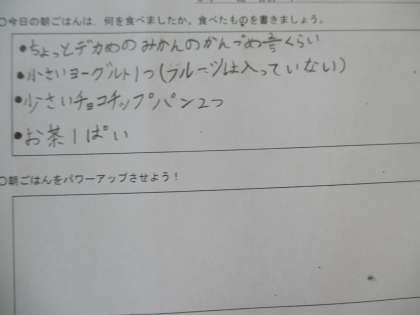 〇今日の朝ごはんは、何を食べましたか。食べたものを書きましょう。
●ちょっとデカめのみかんのかんづめ2/5くらい
●小さいヨーグルト1つ(フルーツは入っていない)
●少さいチョコチップパン2つ
●お茶1ぱい
〇朝ごはんをパワーアップさせよう!